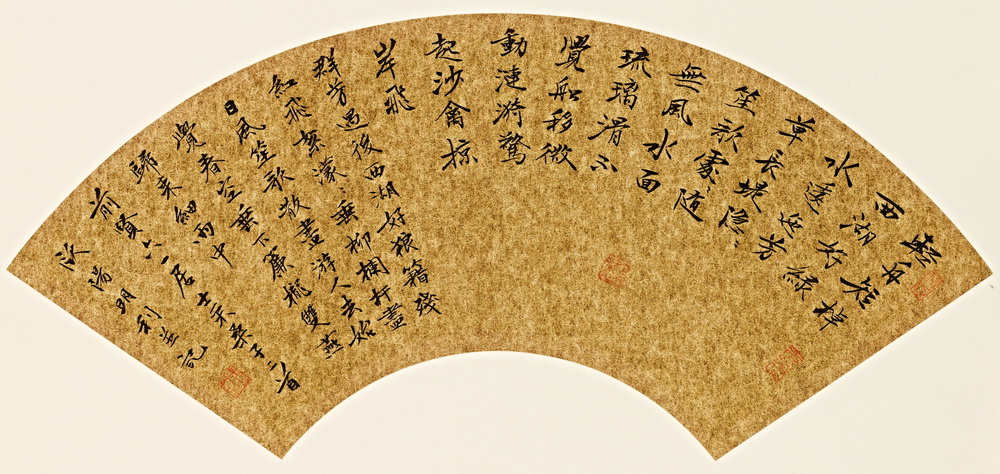 輕舟短棹
西湖好綠
水逶迤芳
草長堤隱〻
笙歌處〻隨
無風水面
琉璃滑不
覺船移微
動漣漪驚
起沙禽掠
岸飛
群芳過後西湖好狼籍殘
紅飛絮濛〻垂柳欄杆盡
日風笙歌散盡游人去始
覺春空垂下簾櫳雙燕
歸來細雨中
前賢六一居士采桑子二首
欧陽明利並記